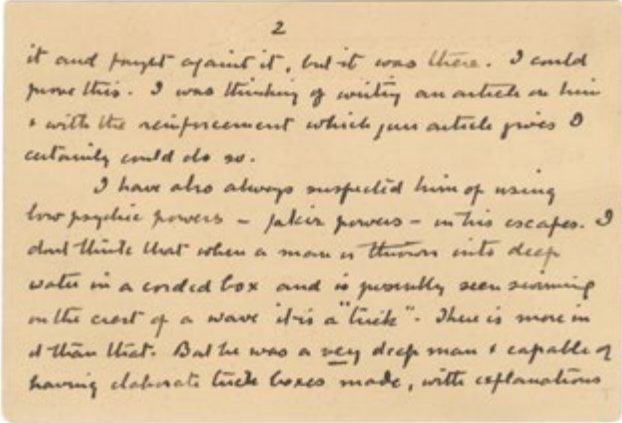 2
it and fought against it, but it was there. I could
prove this. I was thinking of writing an article on him
& with the reinforcement which your article gives I
certainly could do so.
I have also always suspected him of using
low psychic powers – fakir powers – in his escapes. I
dont think that when a man is thrown into deep
water in a corded box and is presently seen swimming
on the crest of a wave it is a "trick". There is more in
it than that. But he was a very deep man & capable of
having elaborate trick boxes made, with explanations